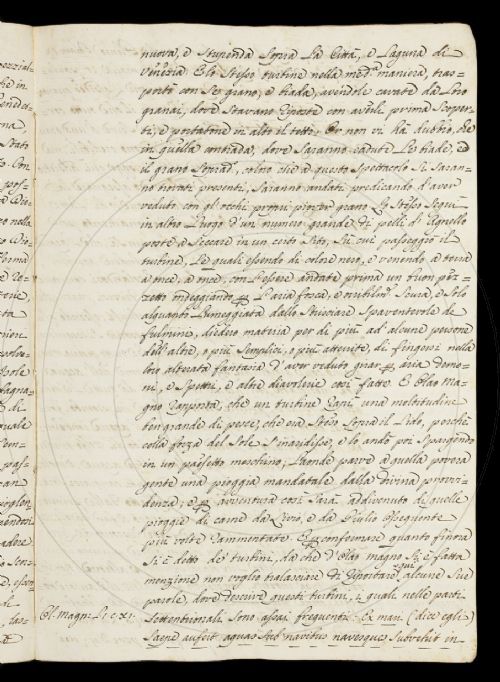 nuova, e stupenda sopra la Città, e Laguna di
Venezia. E lo stesso turbine nella med.ª maniera, tras-
portò con se grano, e biada, avendole cavate da loro
granai, dove stavano riposte con averli prima scoper-
ti, e portatone in alto il tetto. Or non vi hà dubbio, che
in quella contrada, dove saranno cadute le biade, ed
il grano soprad.º, coloro che a questo spettacolo si saran-
no trovati presenti, saranno andati predicando d'aver
veduto con gl'occhi propri piover grano. Lo stesso seguì
in altro luogo d'un numero grande di pelli d'Agnello
poste a seccare in un certo sito, su cui passeggiò il
turbine. Le quali essendo di color nero, e venendo a terra
a once, a once, con l'essere andate prima un buon pez-
zetto ondeggiando per l'aria fosca, e orribilm.e scura, e solo
alquanto lumeggiata dallo strisciare spaventevole de
fulmini, diedero materia per di più ad alcune persone
dell'altre, e più semplici, e più atterrite, di fingersi nella
loro alterata fantasia d'aver veduto girar per aria Demo-
ni, e Spettri, e altre diavolerie così fatte. E Olao Ma-
gno rapporta, che un turbine rapì una moltitudine
ben grande di pesce, che era steso sopra il lido, perchè
colla forza del Sole s'inaridisse, e lo andò poi spargendo
in un paesetto meschino; Laonde parve a quella povera
gente una pioggia mandatale dalla divina provvi-
denza; e per avventura così sarà addivenuto di quelle
pioggie di carne da Livio, e da Giulio Ossequente
più volte rammentate. E per confermare quanto finora
si è detto de' turbini, da che d'Olao magno si è fatta
menzione non voglio tralasciare di riportare qui alcune sue
parole, dove descrive questi turbini, i quali nelle parti
Settentrionali sono assai frequenti. Ex mari (dice egli)
saepe aufert aquas sub navibus navesque subvehit in-
Ol. magn. L. 1. c. XI.